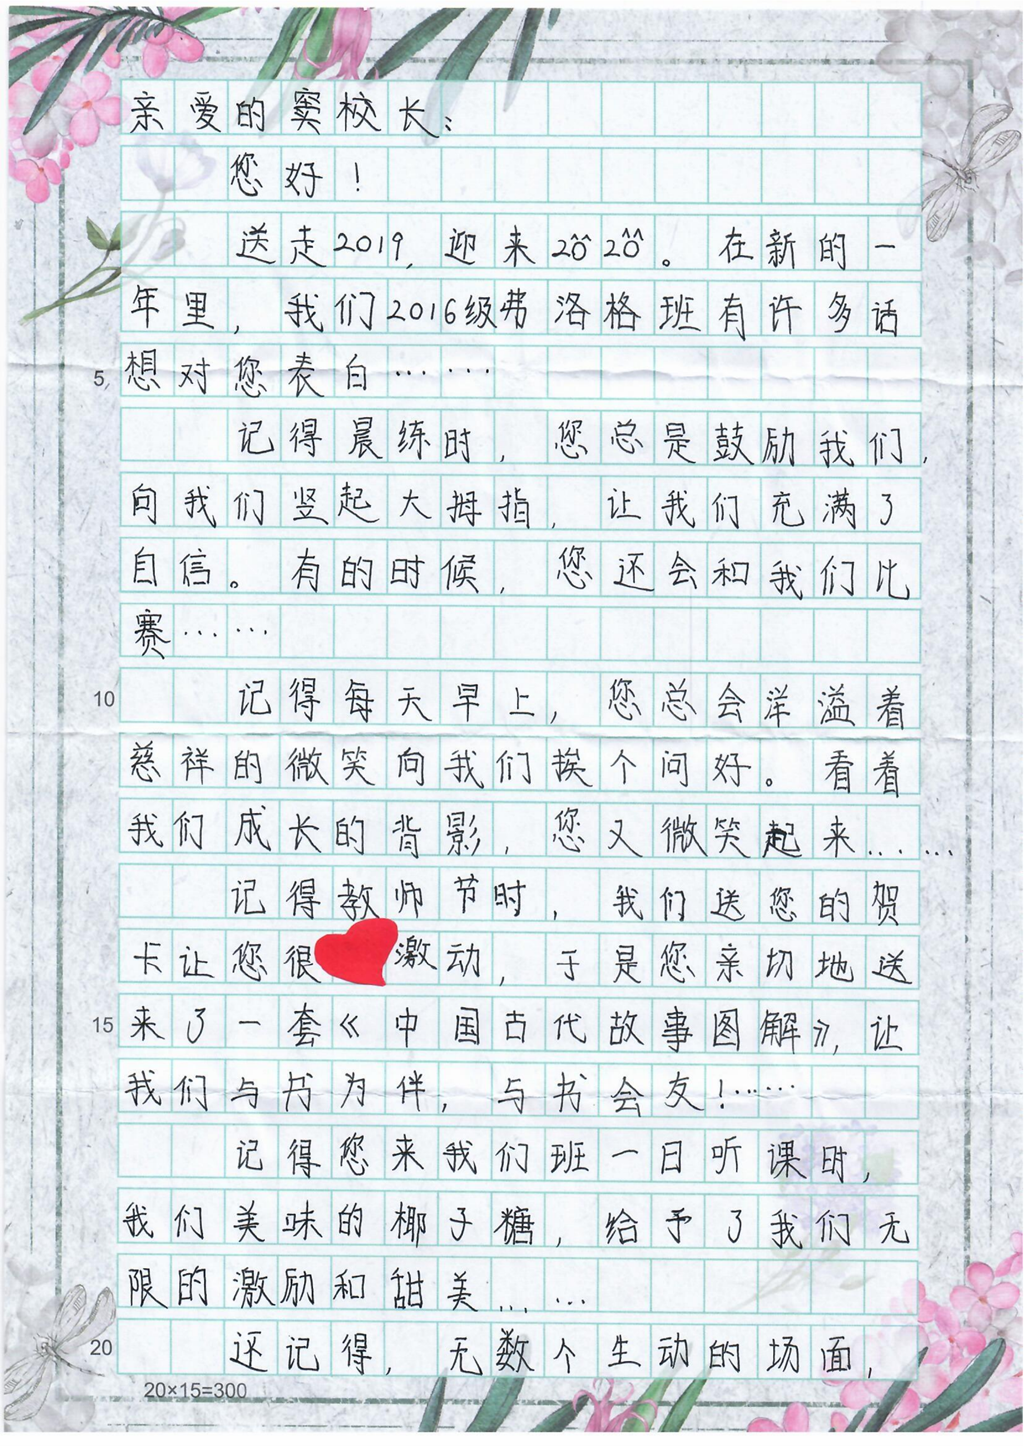 亲爱的窦校长：
您好！
送走2019，迎来2020。在新的一
年里，我们2016级弗洛格班有许多话
5 想对您表白……
记得晨练时，您总是鼓励我们，
向我们竖起大拇指，让我们充满了
自信。有的时候，您还会和我们比
赛……
10 记得每天早上，您总会洋溢着
慈祥的微笑向我们挨个问好。看着
我们成长的背影，您又微笑起来……
记得教师节时，我们送您的贺
卡让您很激动，于是您亲切地送
15 来了一套《中国古代故事图解》，让
我们与书为伴，与书会友！……
记得您来我们班一日听课时，
我们美味的椰子糖，给予了我们无
限的激励和甜美……
20 还记得，无数个生动的场面，
20×15=300